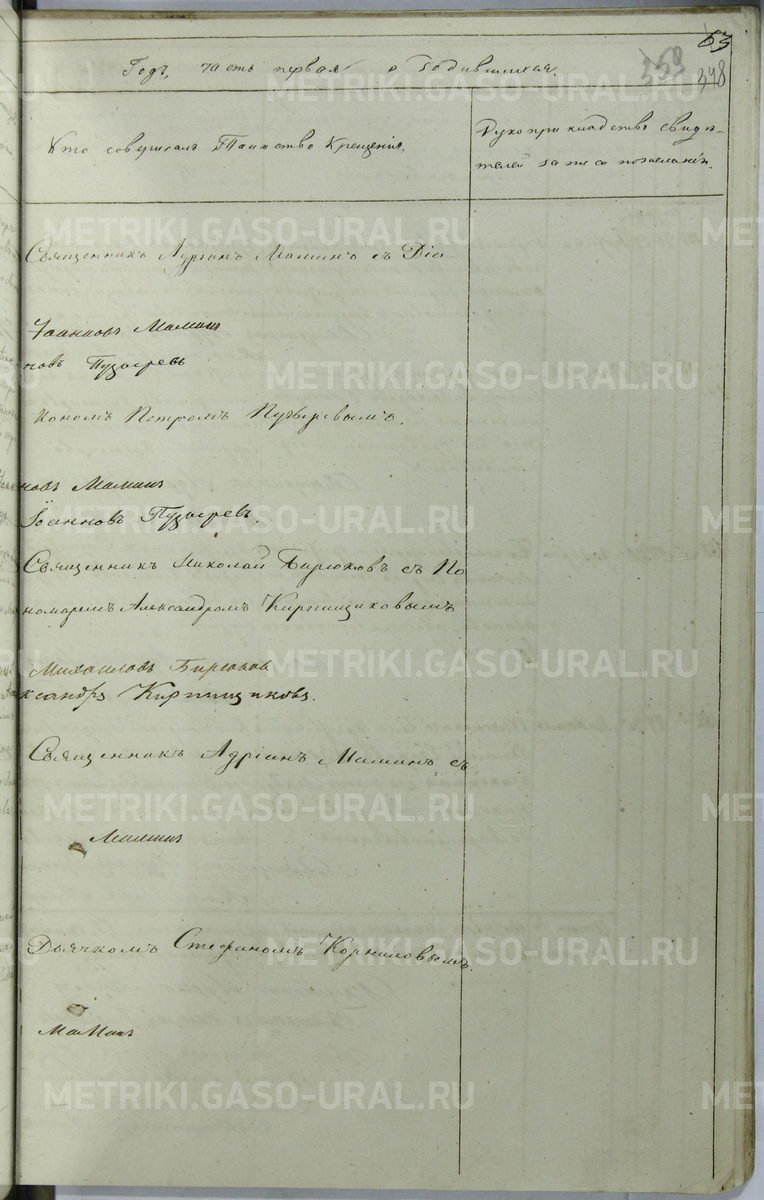 63
Годъ, часть первая о родившихся.
353
348
Кто совершалъ Таинство Крещенія.
Рукоприкладство свидѣ-
телей записи по желанію.
Священникъ Адріанъ Маминъ съ Діа
Іоанновъ Маминъ
новъ Пузыревъ
кономъ Петромъ Пузыревымъ.
новъ Маминъ
Іоанновъ Пузыревъ.
Священникъ Николай Бирюковъ съ По
номаремъ Александромъ Кирпищиковымъ
Михаиловъ Бирюков
ксандръ Кирпищиковъ.
Священникъ Адріанъ Маминъ съ
Маминъ
Дьячкомъ Стефаномъ Корниловымъ.
Маминъ
METRIKI.GASO-URAL.RU